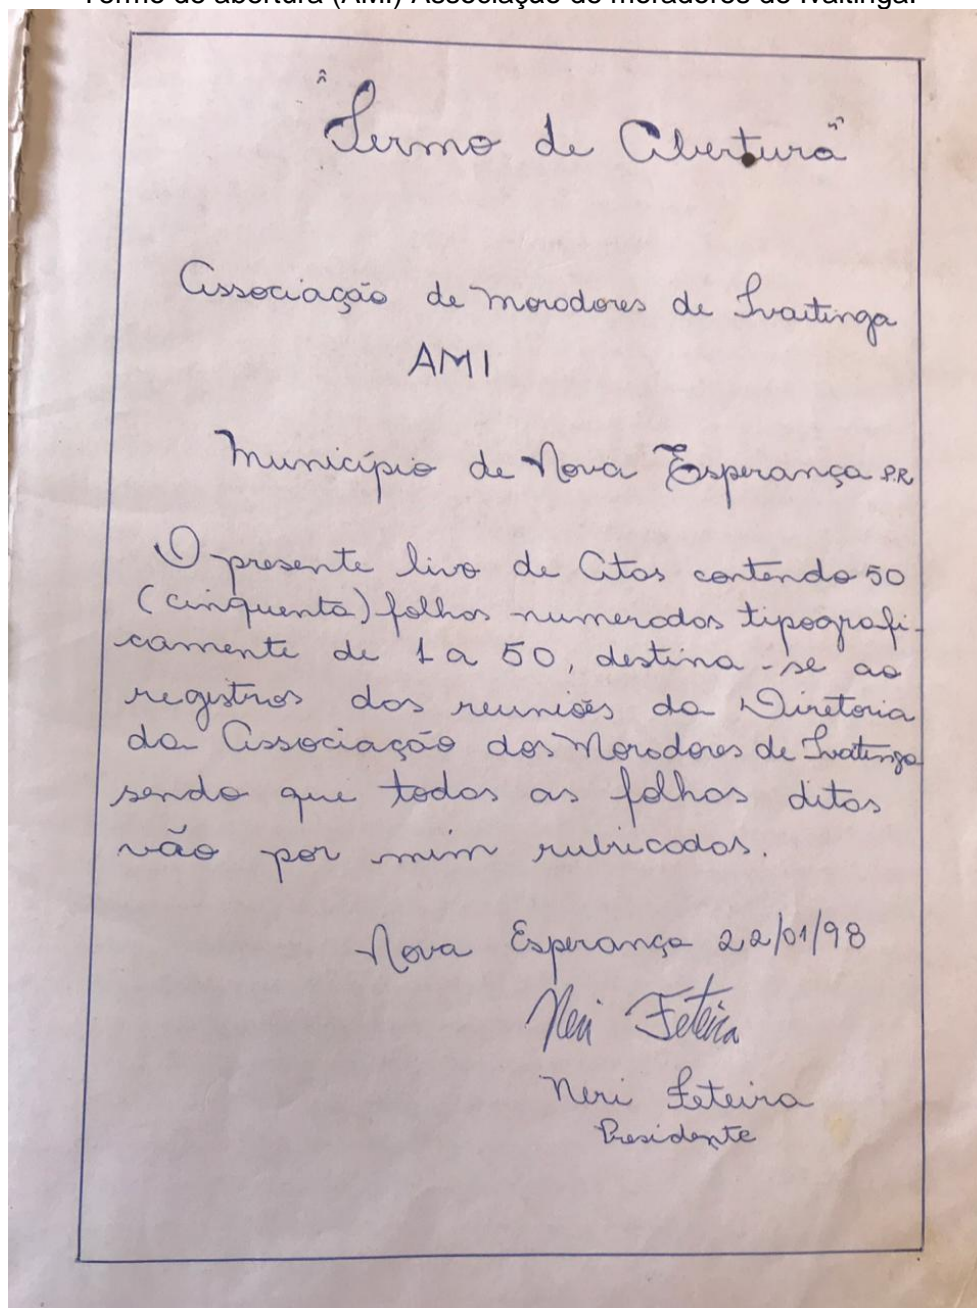 Termo de abertura (AMI) Associação de moradores de Ivaitinga.
"Termo de Abertura"
Associação de Moradores de Ivaitinga
AMI
Município de Nova Esperança PR
O presente livo de Atas contendo 50
(cinquenta) folhas numeradas tipografi-
camente de 1 a 50, destina-se ao
registros das reuniões da Diretoria
da Associação dos Moradores de Ivatinga
sendo que todas as folhas ditas
vão por mim rubricadas.
Nova Esperança 22/01/98
Neri Feteira
Neri Feteira
Presidente